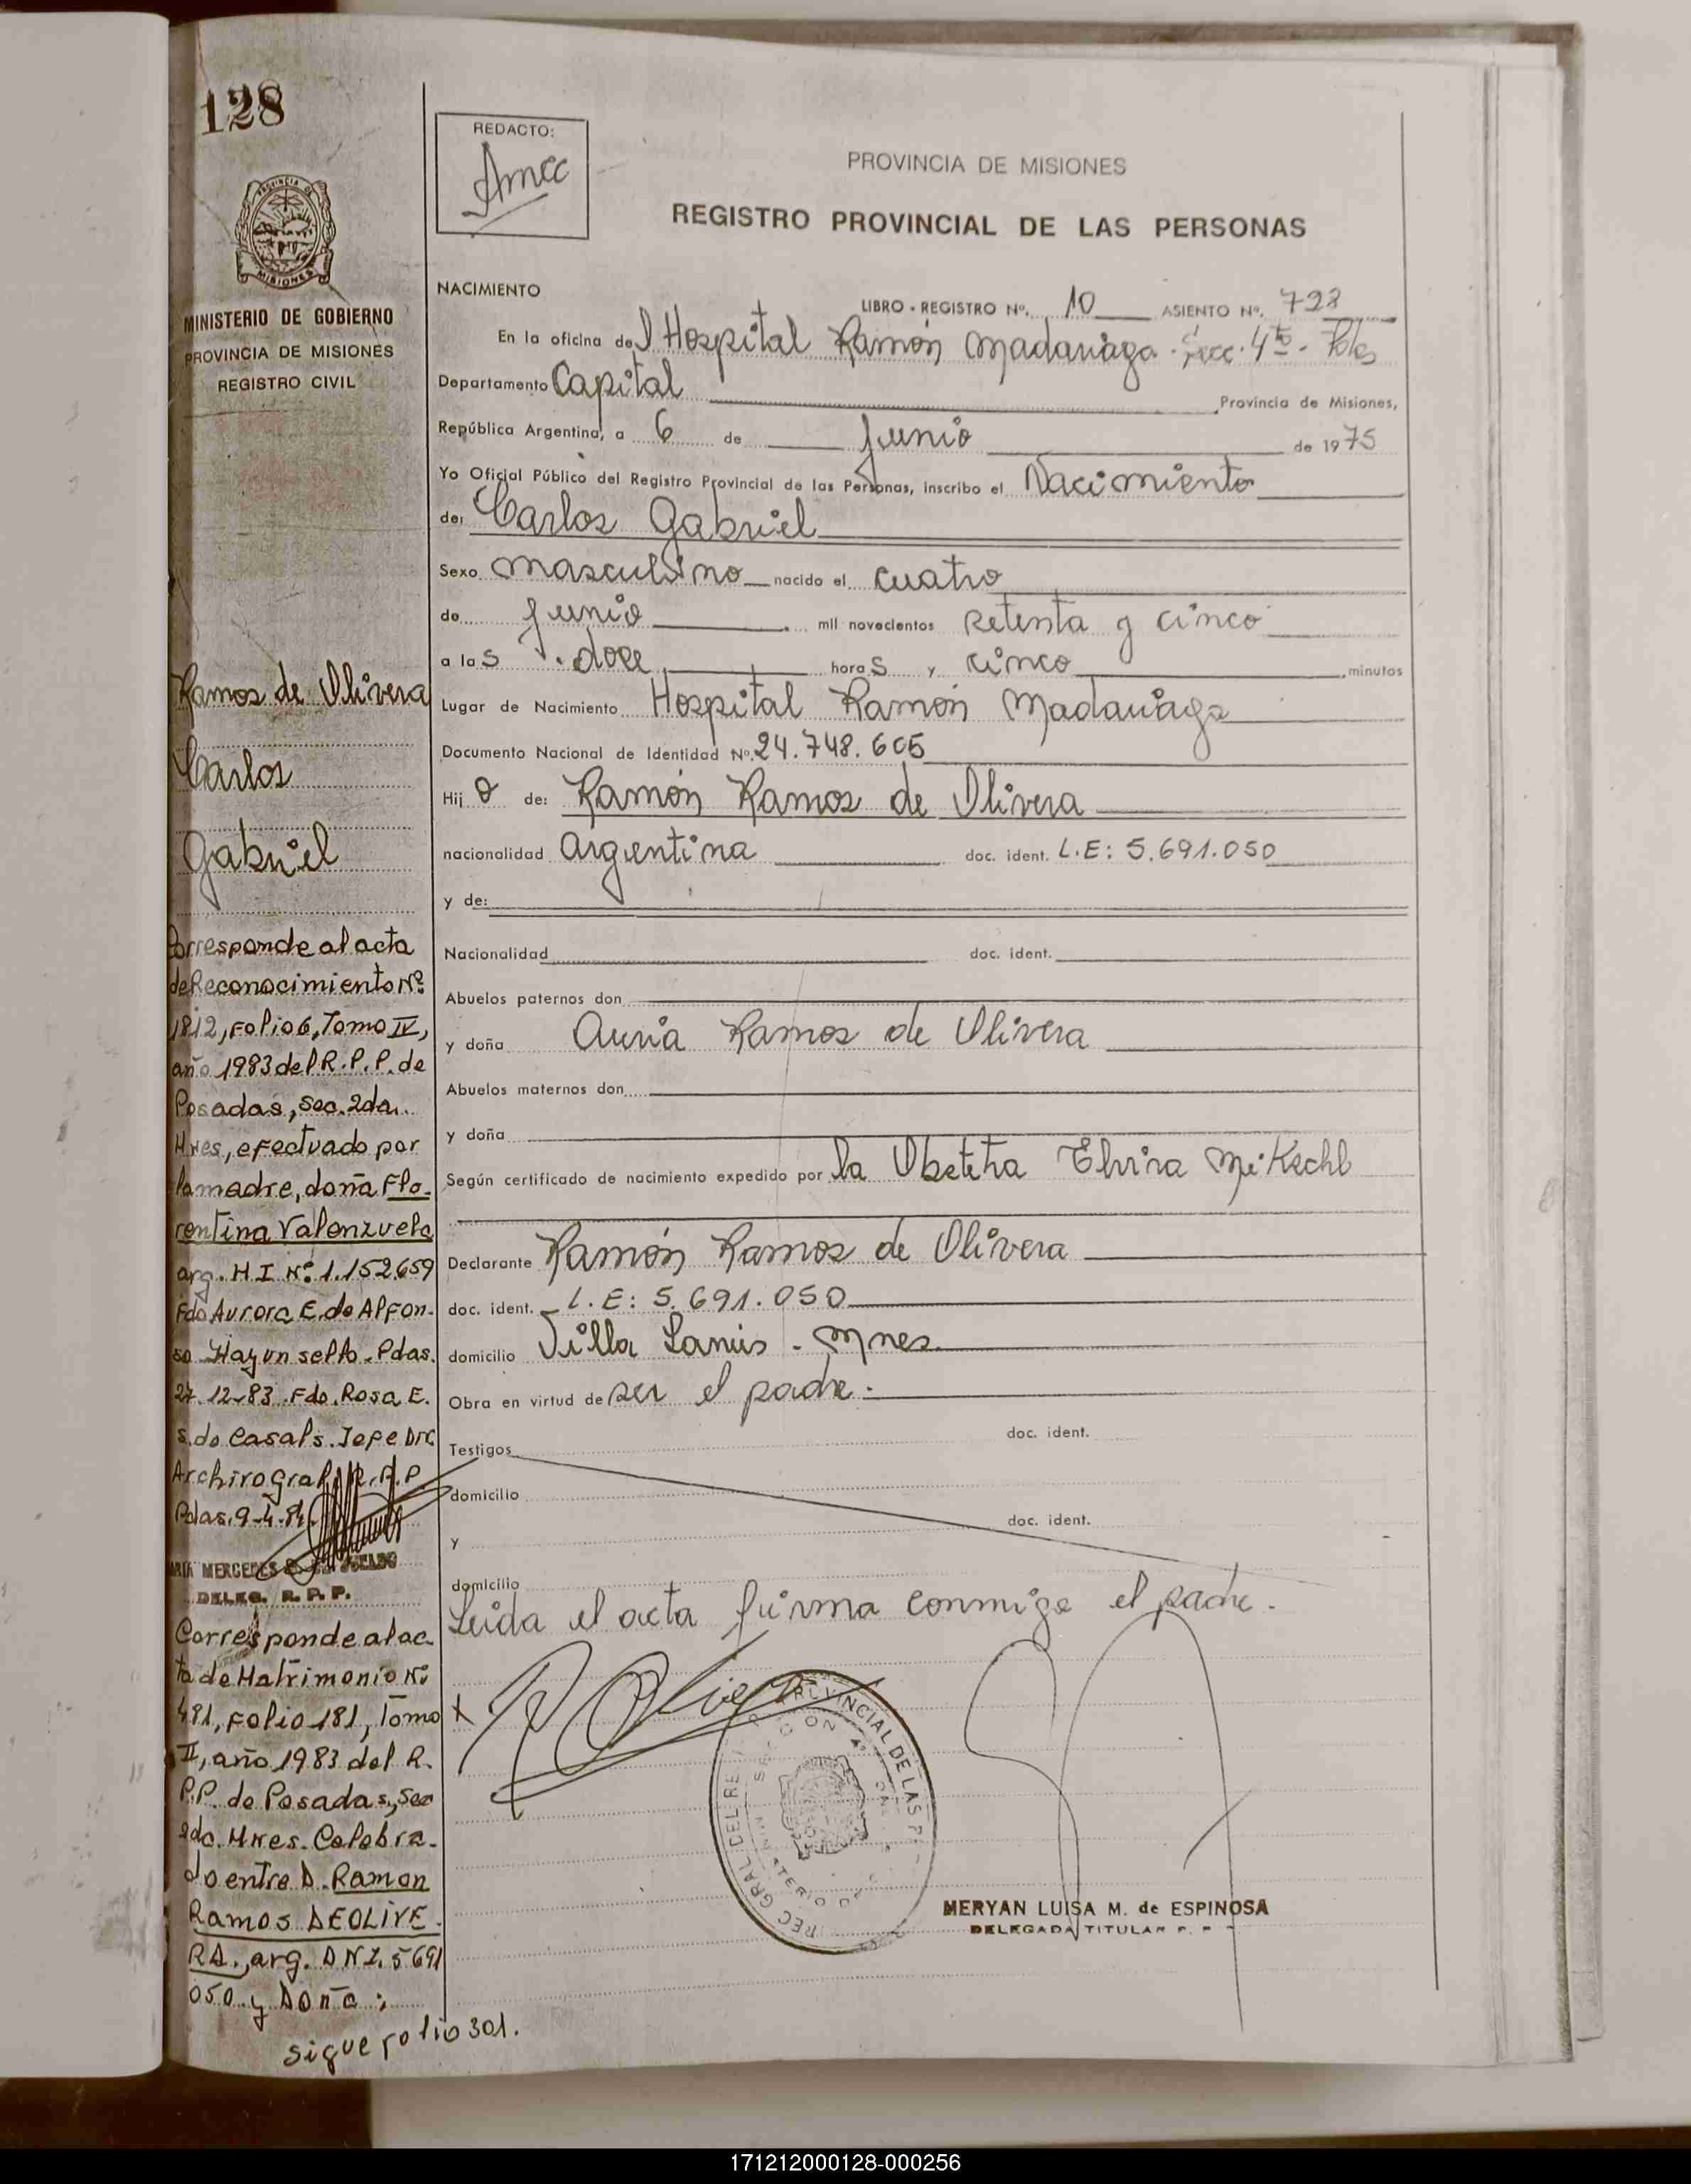 128
REDACTO:
PROVINCIA DE MISIONES
REGISTRO PROVINCIAL DE LAS PERSONAS
PROVINCIA DE
MISIONES
MINISTERIO DE GOBIERNO
PROVINCIA DE MISIONES
REGISTRO CIVIL
NACIMIENTO
LIBRO - REGISTRO Nº. 10 ASIENTO Nº. 728
En la oficina del Hospital Ramón Madariaga - Secc. 4ta - Pdas
Departamento Capital Provincia de Misiones,
República Argentina, a 6 de Junio de 1975
Yo Oficial Público del Registro Provincial de las Personas, inscribo el Nacimiento
de: Carlos Gabriel
Sexo masculino nacido el cuatro
de junio mil novecientos setenta y cinco
a las doce horas y cinco minutos
Lugar de Nacimiento Hospital Ramón Madariaga
Documento Nacional de Identidad Nº. 24.748.605
Hijo de: Ramón Ramos de Olivera
nacionalidad argentina doc. ident. L.E: 5.691.050
y de:
Nacionalidad doc. ident.
Abuelos paternos don
y doña Auria Ramos de Olivera
Abuelos maternos don
y doña
Según certificado de nacimiento expedido por la Obstetra Elvira
Declarante Ramón Ramos de Olivera
doc. ident. L.E: 5.691.050
domicilio Villa Lanús - Mnes.
Obra en virtud de ser el padre.
doc. ident.
Testigos
domicilio
doc. ident.
y
domicilio
Leida el acta firma conmigo el padre.
MERYAN LUISA M. de ESPINOSA
DELEGADA TITULAR
Ramos de Olivera
Carlos
Gabriel
Corresponde al acta
de Reconocimiento Nº
1812, Folio 6, Tomo IV,
año 1983 del R.P.P. de
Posadas, Sec. 2da.
Mnes, efectuado por
la madre, doña Flo-
rentina Valenzuela
arg. M I Nº 1.152.659
Fdo Aurora E. de Alfon-
so Hay un sello. Pdas.
27-12-83. Fdo. Rosa E.
S. de Casals. Jefe Dic
Archivo Gral. R.P.P
Pdas. 9-4-84.
MERCEDES
DELEG. R.P.P.
Corresponde al ac-
ta de Matrimonio Nº
481, Folio 181, Tomo
II, año 1983 del R.
P.P. de Posadas, Sec
2da. Mnes. Celebra-
do entre D. Ramon
Ramos DEOLIVE-
RA, arg. DNI. 5691
050 y Doña:
sigue folio 301.
171212000128-000256